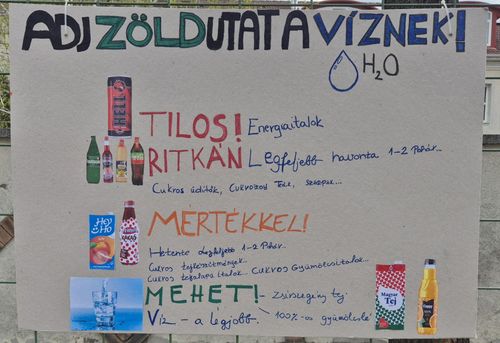 ADJ ZÖLDUTAT A VÍZNEK!
H₂O
HELL
TILOS! Energiaitalok
RITKÁN Legfeljebb havonta 1-2 Pohár...
Cukros üdítők, Cukrozott Teák, szörpök...
Hey Ho
MÉRTÉKKEL!
Hetente Legfeljebb 1-2 Pohár...
Cukros tejkészítmények
Cukros tejalapú italok.. Cukros Gyümölcsitalok...
MEHET! - Zsírszegény tej
Víz - a légjobb. 100%-os gyümölcslé
Magyar Tej